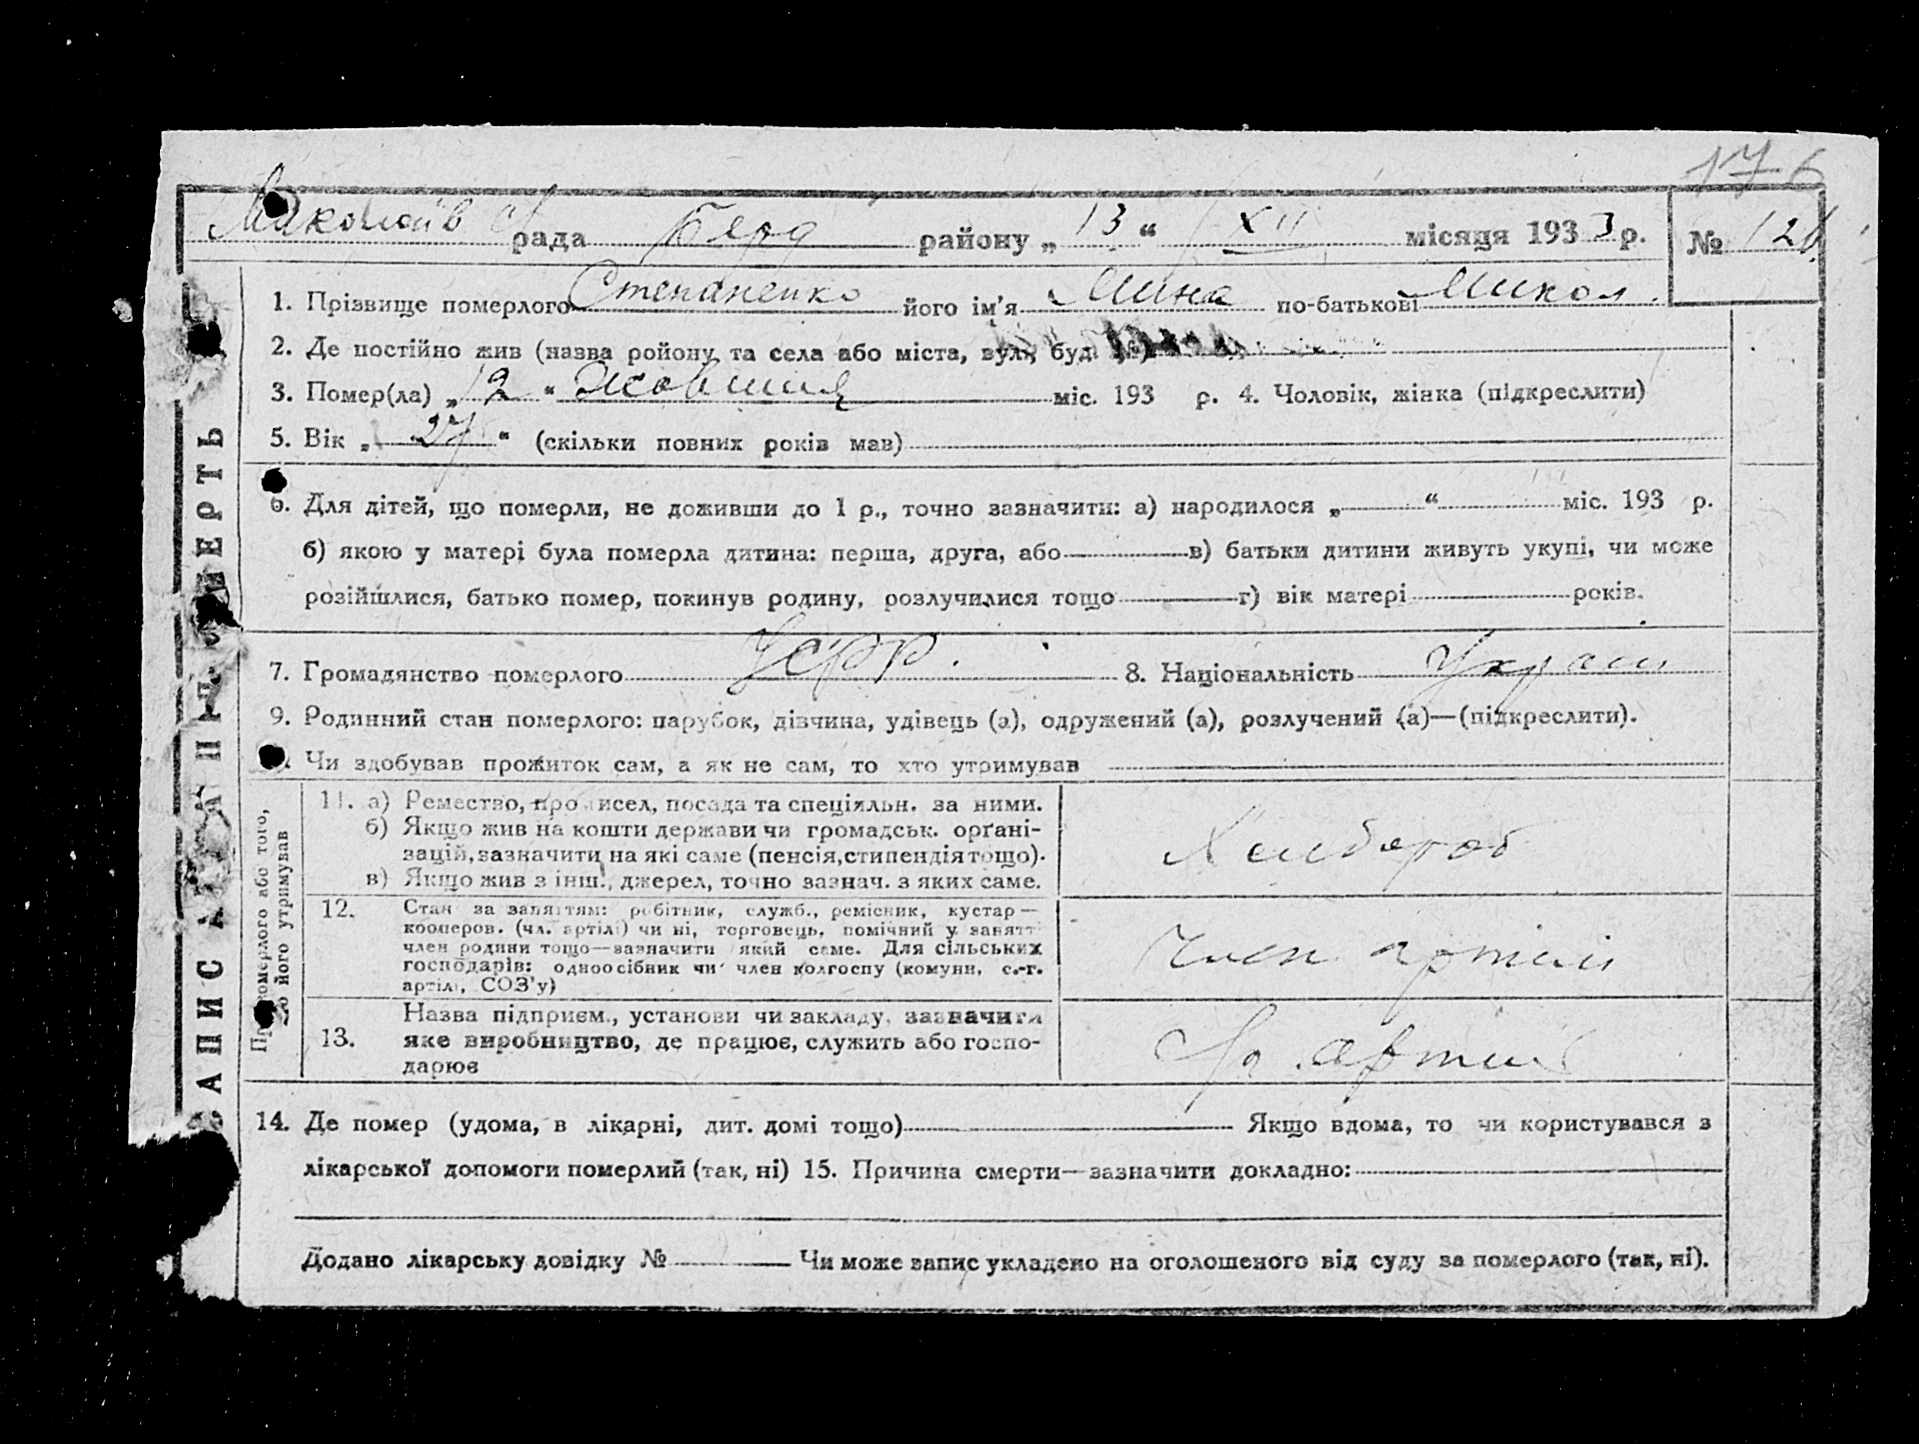 176
Миколаїв рада Берд району „ 13 “ XII місяця 1933 р. № 126
1. Прізвище померлого Степаненко його ім'я Мина по-батькові Микол.
2. Де постійно жив (назва ройону та села або міста, вул., буд. №)
3. Помер(ла) „ 12 “ Жовтня міс. 193 р. 4. Чоловік, жінка (підкреслити)
5. Вік „ 27 “ (скільки повних років мав)
6. Для дітей, що померли, не доживши до 1 р., точно зазначити: а) народилося „ “ міс. 193 р.
б) якою у матері була померла дитина: перша, друга, або в) батьки дитини живуть укупі, чи може
розійшлися, батько помер, покинув родину, розлучилися тощо г) вік матері років.
7. Громадянство померлого УСРР. 8. Національність Україн
9. Родинний стан померлого: парубок, дівчина, удівець (а), одружений (а), розлучений (а)—(підкреслити).
Чи здобував прожиток сам, а як не сам, то хто утримував
11. а) Ремество, промисел, посада та спеціяльн. за ними.
б) Якщо жив на кошти держави чи громадськ. орґані-
зацій, зазначити на які саме (пенсія, стипендія тощо).
в) Якщо жив з інш. джерел, точно зазнач. з яких саме.
Хлібороб
12. Стан за заняттям: робітник, служб., ремісник, кустар—
кооперов. (чл. артілі) чи ні, торговець, помічний у занятт
член родини тощо—зазначити який саме. Для сільських
господарів: одноосібник чи член колгоспу (комуни, с.-г.
артілі, СОЗ'у)
Член артілі
13. Назва підприєм., установи чи закладу, зазначити
яке виробництво, де працює, служить або госпо-
дарює
артіль
14. Де помер (удома, в лікарні, дит. домі тощо) Якщо вдома, то чи користувався з
лікарської допомоги померлий (так, ні) 15. Причина смерти—зазначити докладно:
Додано лікарську довідку № Чи може запис укладено на оголошеного від суду за померлого (так, ні).